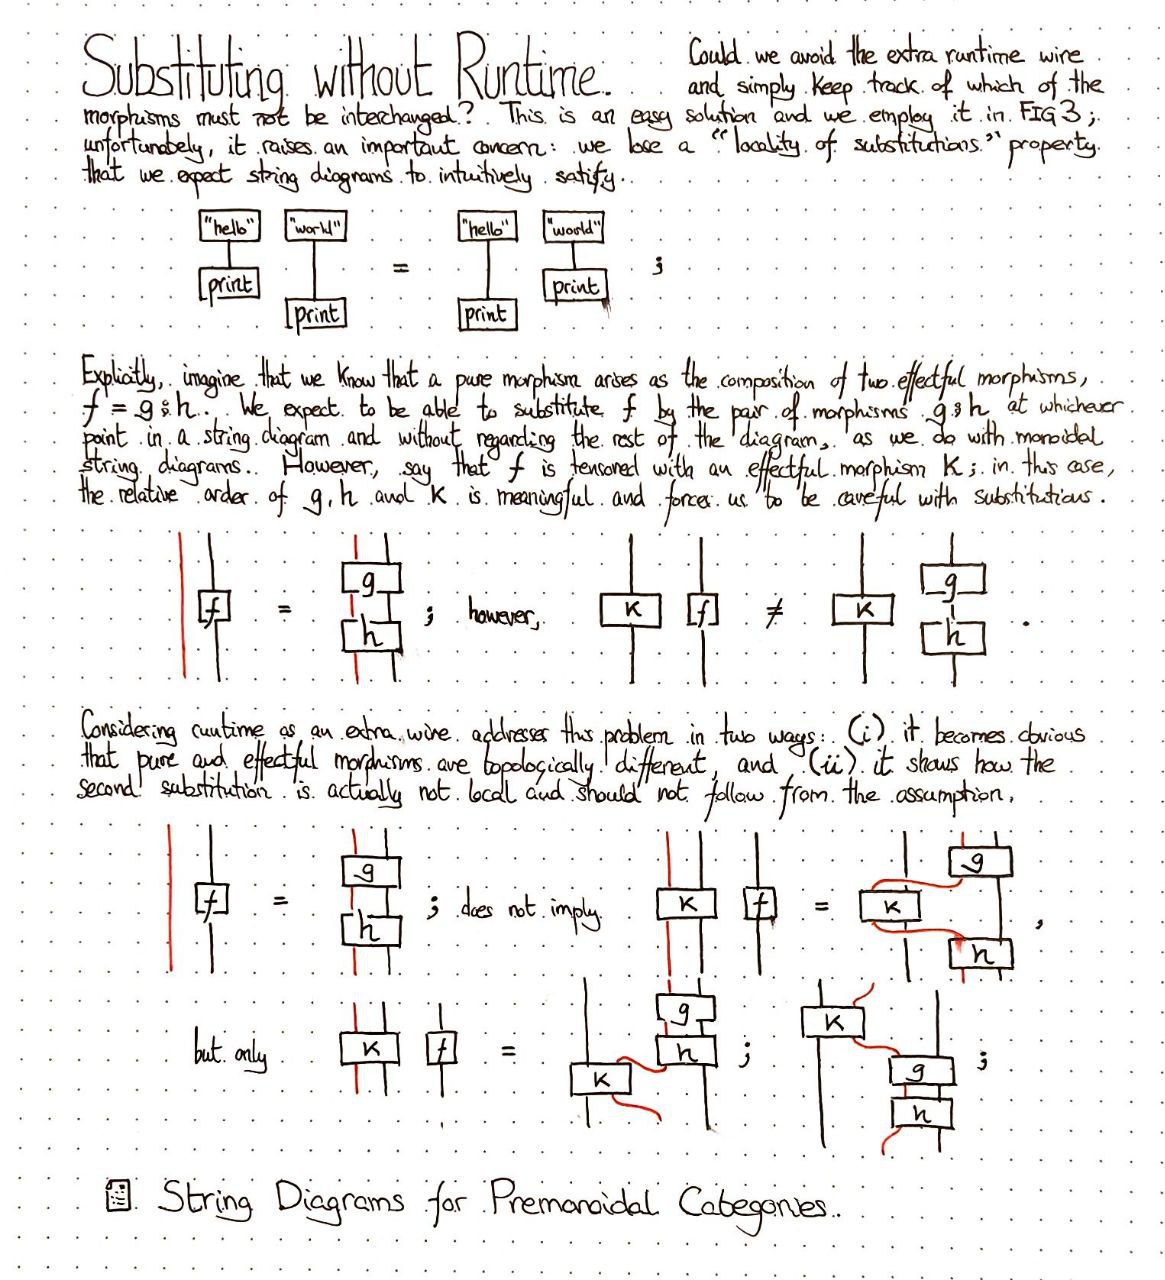 Substituting without Runtime. Could we avoid the extra runtime wire
and simply keep track of which of the
morphisms must not be interchanged? This is an easy solution and we employ it in FIG 3;
unfortunately, it raises an important concern: we lose a "locality of substitutions" property
that we expect string diagrams to intuitively satify.
"hello" "world" "hello" "world"
= ;
print print
print print
Explicitly, imagine that we know that a pure morphism arises as the composition of two effectful morphisms,
f = g⨾h. We expect to be able to substitute f by the pair of morphisms g⨾h at whichever
point in a string diagram and without regarding the rest of the diagram, as we do with monoidal
string diagrams. However, say that f is tensored with an effectful morphism K; in this case,
the relative order of g, h and K is meaningful and forces us to be careful with substitutions.
g g
f = ; however, K f ≠ K .
h h
Considering runtime as an extra wire addresses this problem in two ways: (i) it becomes obvious
that pure and effectful morphisms are topologically different, and (ii) it shows how the
second substitution is actually not local and should not follow from the assumption.
g g
f = ; does not imply K f = K ,
h h
g K
but only K f = h ; g ;
K h
String Diagrams for Premonoidal Categories.